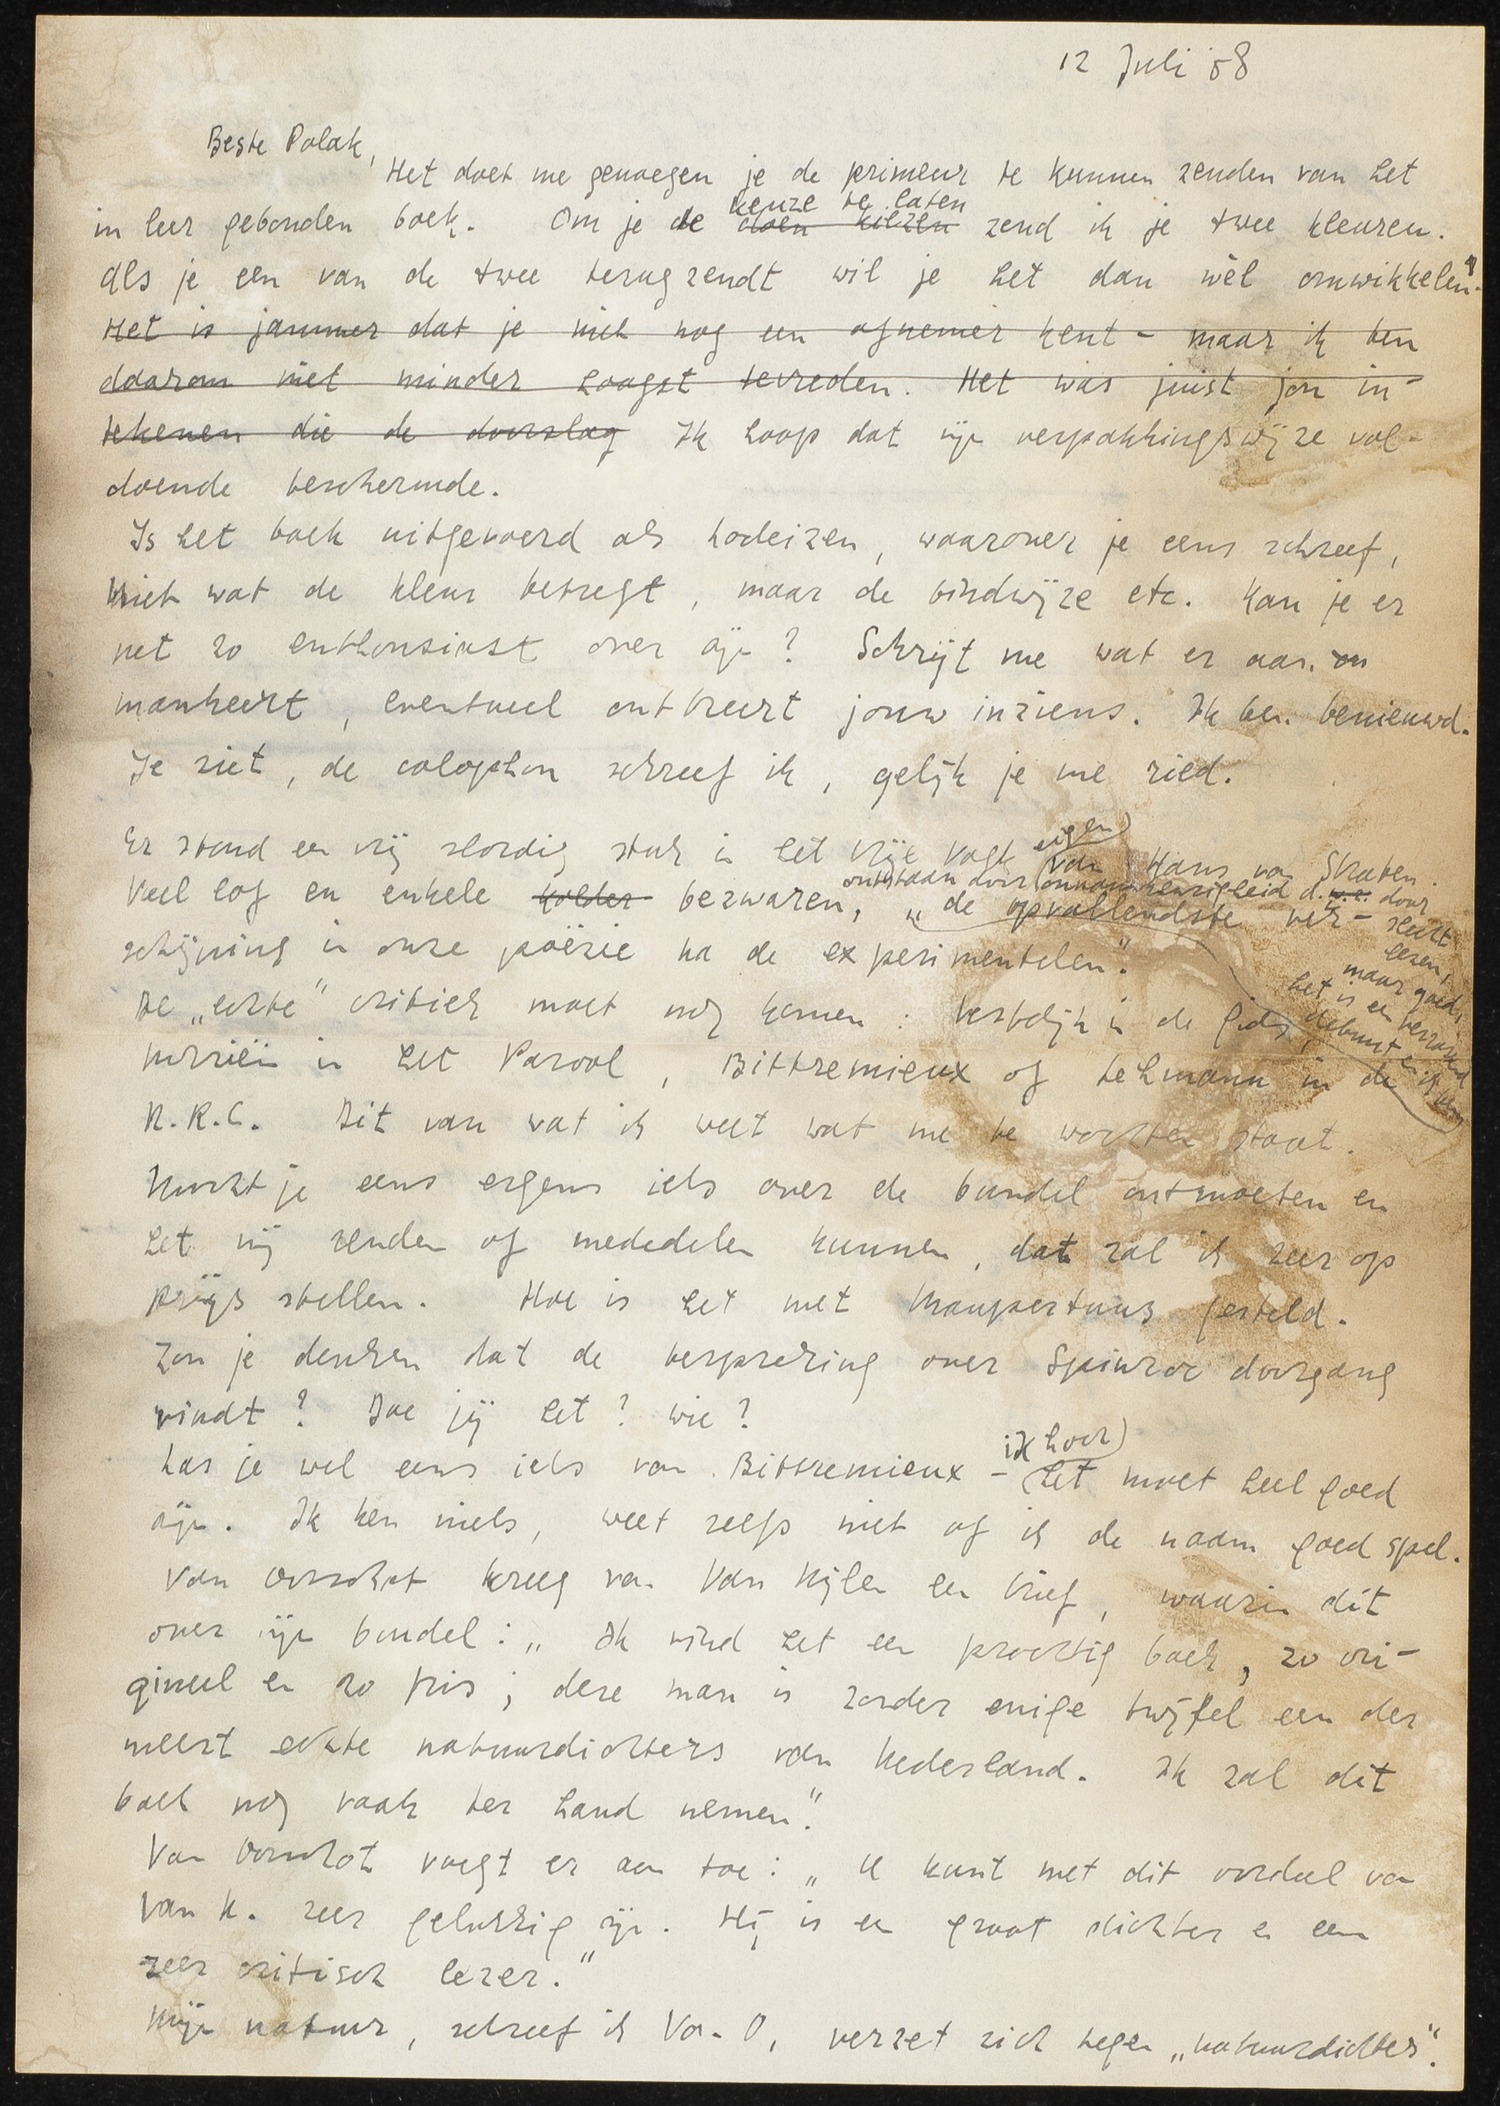 12 Juli '58
Beste Polak,
Het doet me genoegen je de primeur te kunnen zenden van het
in leer gebonden boek. Om je de doen kiezen keuze te laten zend ik je twee kleuren.
Als je een van de twee terugzendt wil je het dan wèl omwikkelen?
Het is jammer dat je niet nog een afnemer kent – maar ik ben
daarom niet minder hoogst tevreden. Het was juist jou in-
tekenen die de doorslag Ik hoop dat mijn verpakkingswijze vol-
doende beschermde.
Is het boek uitgevoerd als Lodeizen, waarover je eens schreef,
niet wat de kleur betreft, maar de bindwijze etc. Kan je er
net zo enthousiast over zijn? Schrijf me wat er aan
mankeert, eventueel ontbreekt jouw inziens. Ik ben benieuwd.
Je ziet, de colophon schreef ik, gelijk je me ried.
Er stond een vrij slordig stuk in het Vrije Volk van Hans van Straten.
Veel lof en enkele kolder bezwaren, ontstaan door eigen onnauwkeurigheid d.w.z. door
slecht
lezen,
maar goed,
het is een verrassend
debuut en ik ben
„de opvallendste ver-
schijning in onze poëzie na de experimentelen".
De „echte" critiek moet nog komen: Vestdijk in de Gids,
Morriën in het Parool, Bittremieux of Lehmann in de
N.R.C. Dit van wat ik weet wat me te wachten staat.
Mocht je eens ergens iets over de bundel ontmoeten en
het mij zenden of mededelen kunnen, dat zal ik zeer op
prijs stellen. Hoe is het met Maupertuus gesteld.
Zou je denken dat de bespreking over Spinroc doorgang
vindt? Doe jij het? wie?
Las je wel eens iets van Bittremieux – ik hoor het moet heel goed
zijn. Ik ken niets, weet zelfs niet of ik de naam goed spel.
Van Oorschot kreeg van Van Nijlen een brief, waarin dit
over mijn bundel: „Ik vind het een prachtig boek, zo ori-
gineel en zo fris; deze man is zonder enige twijfel een der
meest echte natuurdichters van Nederland. Ik zal dit
boek nog vaak ter hand nemen."
Van Oorschot voegt er aan toe: „U kunt met dit oordeel van
Van N. zeer gelukkig zijn. Hij is een groot dichter en een
zeer critisch lezer."
Mijn natuur, schreef ik Van O, verzet zich tegen „natuurdichters".